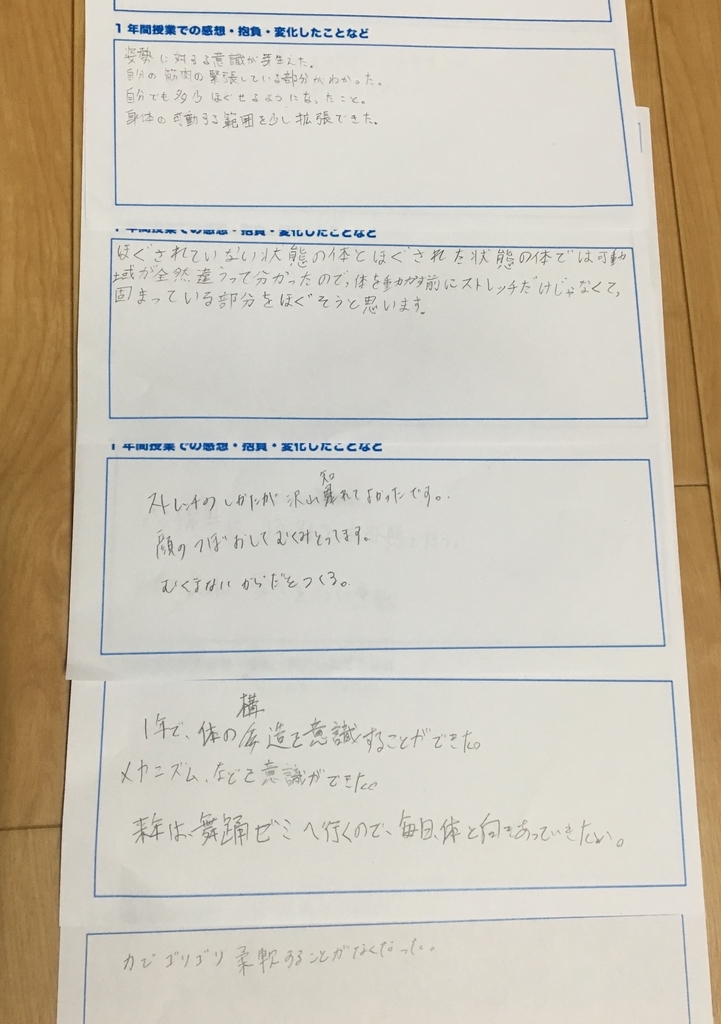 1年間授業での感想・抱負・変化したことなど
姿勢に対する意識が芽生えた。
自分の筋肉の緊張している部分がわかった。
自分でも多少ほぐせるようになったこと。
身体の可動する範囲を少し拡張できた。
1年間授業での感想・抱負・変化したことなど
ほぐされていない状態の体とほぐされた状態の体では可動
域が全然違うって分かったので、体を動かす前にストレッチだけじゃなくて、
固まっている部分をほぐそうと思います。
1年間授業での感想・抱負・変化したことなど
ストレッチのしかたが沢山知れてよかったです。
顔のつぼおしてむくみとってます。
むくまないからだをつくる。
1年で、体の構造を意識することができた。
メカニズム、などを意識ができた。
来年は、舞踊ゼミへ行くので、毎日、体と向きあっていきたい。
力でゴリゴリ柔軟することがなくなった。